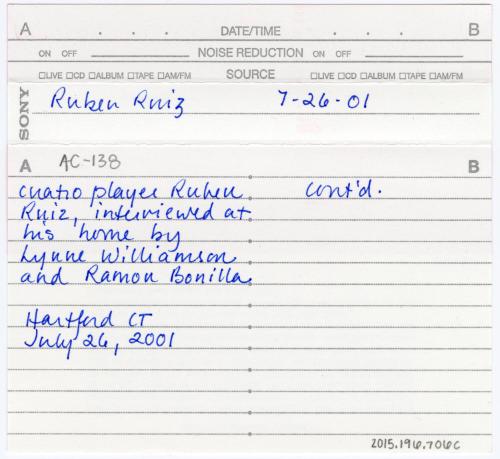 A . . . DATE/TIME . . . B
ON OFF NOISE REDUCTION ON OFF
□LIVE □CD □ALBUM □TAPE □AM/FM SOURCE □LIVE □CD □ALBUM □TAPE □AM/FM
SONY
Ruben Ruiz 7-26-01
A AC-138 B
cuatro player Ruben cont'd.
Ruiz, interviewed at
his home by
Lynne Williamson
and Ramon Bonilla.
Hartford CT
July 26, 2001
2015.196.706c